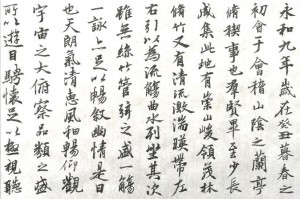 永和九年歲在癸丑暮春之
初會于會稽山陰之蘭亭
脩稧事也羣賢畢至少長
咸集此地有崇山峻領茂林
脩竹又有清流激湍暎帶左
右引以為流觴曲水列坐其次
雖無絲竹管弦之盛一觴
一詠亦足以暢叙幽情是日
也天朗氣清惠風和暢仰觀
宇宙之大俯察品類之盛
所以遊目騁懷足以極視聽